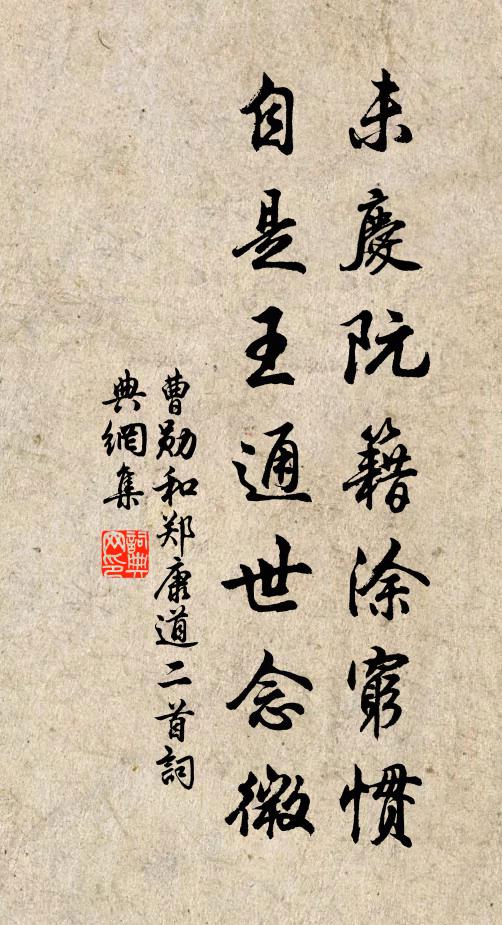 未慶阮籍涂窮慣
自是王通世念微
曹勛和郑康道二首詞
典網集
詞典网印